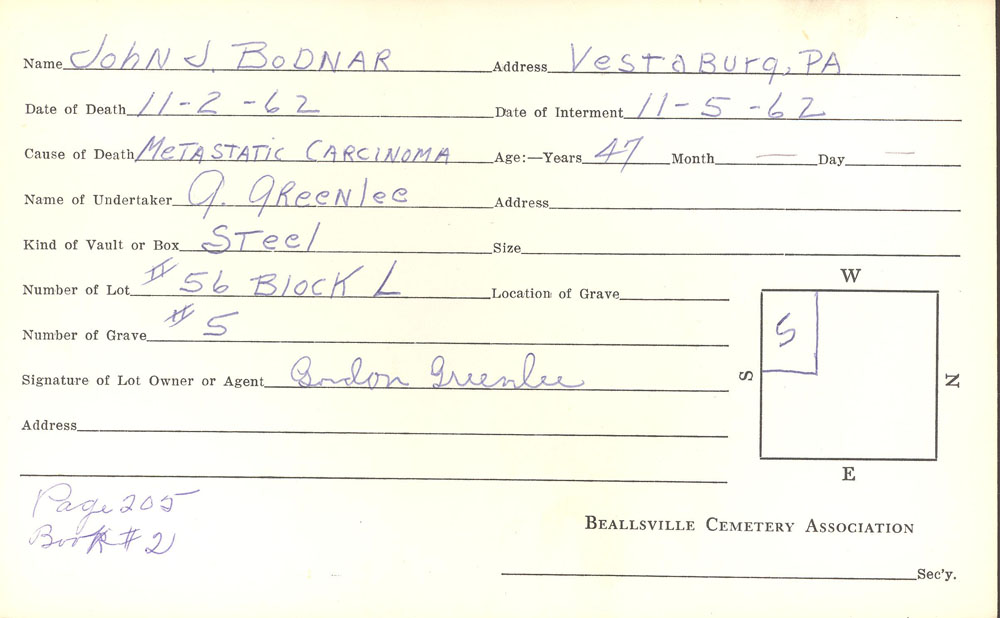 Name John J. Bodnar Address Vestaburg, PA
Date of Death 11-2-62 Date of Interment 11-5-62
Cause of Death Metastatic Carcinoma Age:—Years 47 Month — Day —
Name of Undertaker G. Greenlee Address
Kind of Vault or Box Steel Size
Number of Lot #56 Block L Location of Grave
Number of Grave #5
Signature of Lot Owner or Agent Gordon Greenlee
Address
W
S
5
N
E
Page 205
Book #2
Beallsville Cemetery Association
Sec'y.